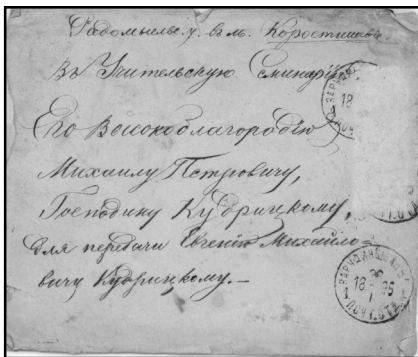 Радомысльс. у. въ м. Коростишевъ
Въ Учительскую Семинарію
Его Высокоблагородію
Михаилу Петровичу,
Господину Кудрицкому,
для передачи Евгенію Михайло-
вичу Кудрицкому.–
18
18 95